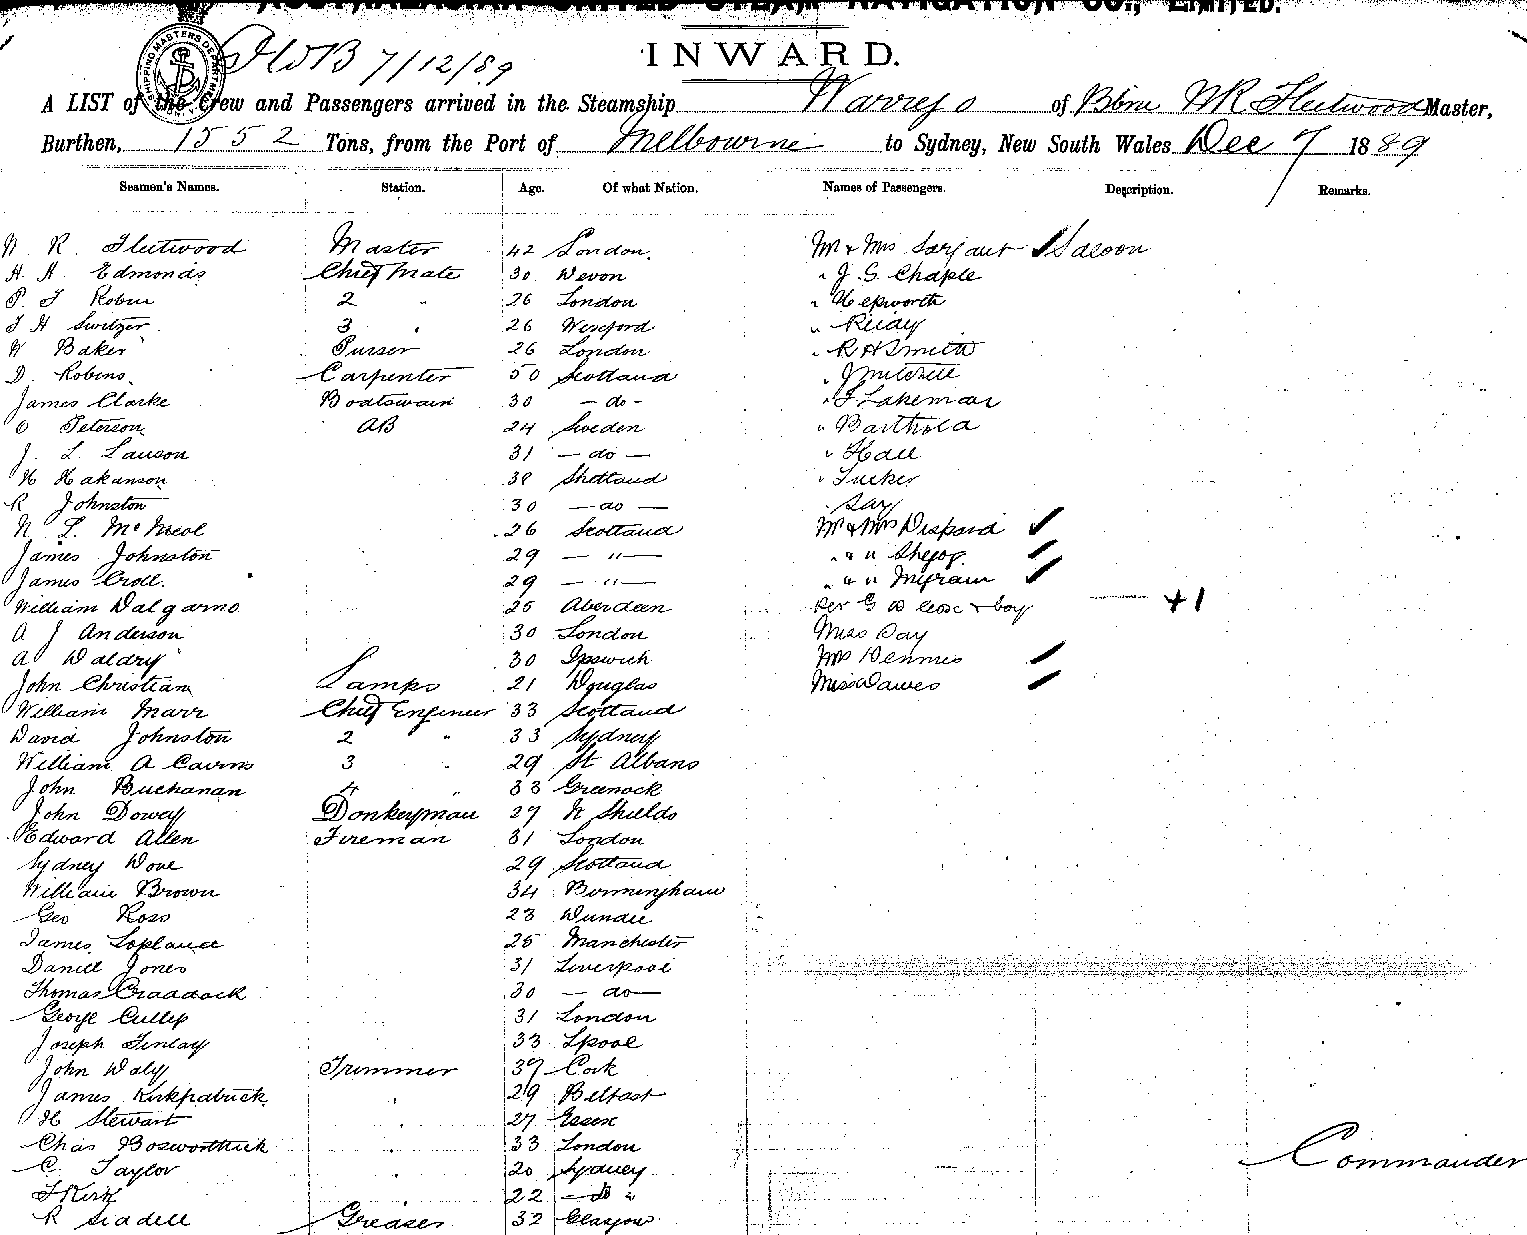 AUSTRALASIAN UNITED STEAM NAVIGATION CO., LIMITED.
INWARD.
7/12/89
A LIST of the Crew and Passengers arrived in the Steamship Warrego of Bbne W R Fleetwood Master,
Burthen, 1552 Tons, from the Port of Melbourne to Sydney, New South Wales Dec 7 1889
Seamen's Names. Station. Age. Of what Nation. Names of Passengers. Description. Remarks.
W. R. Fleetwood Master 42 London. Mr & Mrs Sarjant Saloon
H. H. Edmonds Chief Mate 30 Devon " J. G. Chaple
P. J Robin 2 " 26 London " Hepworth
J H Switzer 3 " 26 Wexford "
W Baker Purser 26 London " R H Smith
D. Robins Carpenter 50 Scotland " J Mitchell
James Clarke Boatswain 30 - do - " J Lakeman
O Peterson AB 24 Sweden " Barthold
J. L. Lawson 31 - do - " Hall
H Hakanson 38 Shetland " Tucker
R Johnston 30 - do - " Say
N L. McNicol 26 Scotland Mr & Mrs Despard
James Johnston 29 - " - " " "
James Croll. 29 - " - " " " Ingram
William Dalgarno 25 Aberdeen Rev G W & boy +1
A J Anderson 30 London Miss Day
A Waldry 30 Ipswich Mrs Dennis
John Christian Lamps 21 Douglas Miss Dawes
William Marr Chief Engineer 33 Scotland
David Johnston 2 " 33 Sydney
William A Cairns 3 " 29 St Albans
John Buchanan 4 " 33 Greenock
John Dowey Donkeyman 27 N Shields
Edward Allen Fireman 31 London
Sydney Dove 29 Scotland
William Brown 34 Birmingham
Geo Ross 23 Dundee
James Lopland 25 Manchester
Daniel Jones 31 Liverpool
Thomas Craddock 30 - do -
George Culley 31 London
Joseph Finlay 33 Lpool
John Daly Trimmer 37 Cork
James Kirkpatrick 29 Belfast
H Stewart 27 Essex
Chas Bosworthick 33 London
C. Taylor 20 Sydney
J Kirk 22 - do "
R Siddell Greaser 32 Glasgow
Commander